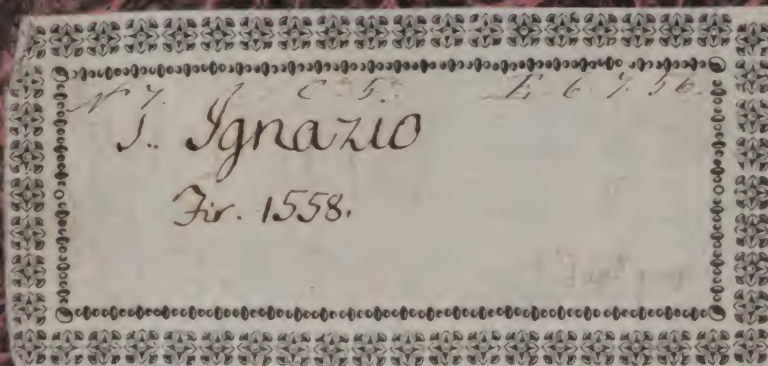 N 7. C 5. E. 6. 7. 56.
S. Ignazio
Fir. 1558.